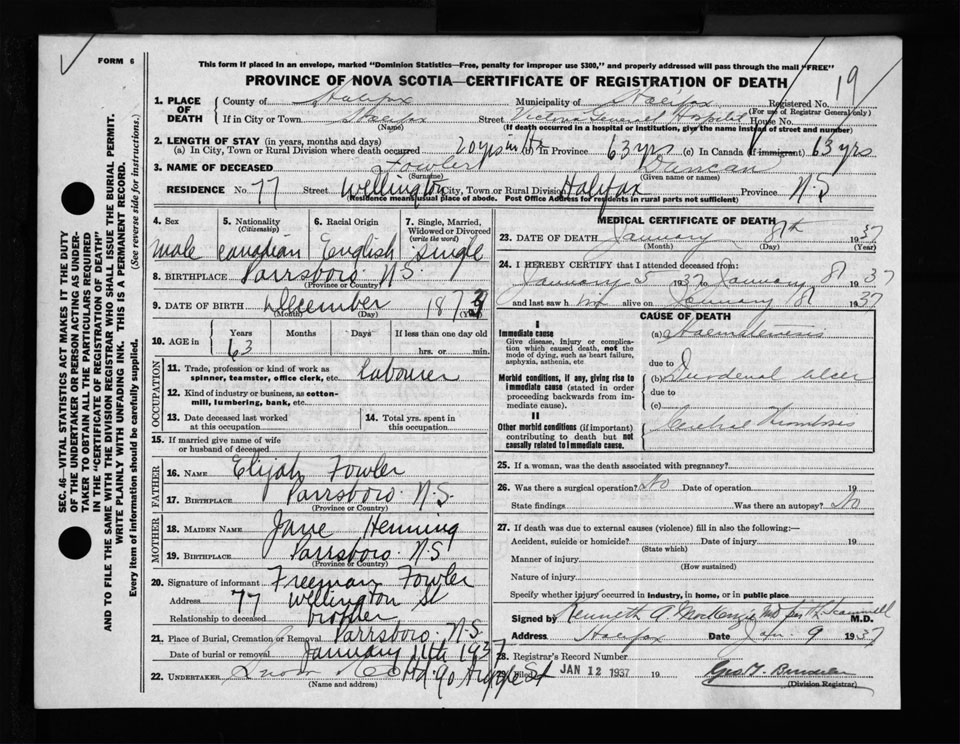 FORM 6
This form if placed in an envelope, marked "Dominion Statistics—Free, penalty for improper use $300," and properly addressed will pass through the mail "FREE"
PROVINCE OF NOVA SCOTIA—CERTIFICATE OF REGISTRATION OF DEATH
19
1. PLACE OF DEATH
County of Halifax Municipality of Halifax Registered No.
(For use of Registrar General only)
If in City or Town Halifax Street Victoria General Hospital House No.
(Name) (If death occurred in a hospital or institution, give the name instead of street and number)
2. LENGTH OF STAY (in years, months and days)
(a) In City, Town or Rural Division where death occurred 20 yrs in Hx (b) In Province 63 yrs (c) In Canada (if immigrant) 63 yrs
3. NAME OF DECEASED Fowler Duncan
(Surname) (Given name or names)
RESIDENCE No. 77 Street Wellington City, Town or Rural Division Halifax Province N.S
(Residence means usual place of abode. Post Office Address for residents in rural parts not sufficient)
4. Sex 5. Nationality (Citizenship) 6. Racial Origin 7. Single, Married, Widowed or Divorced (write the word)
male canadian English single
8. BIRTHPLACE Parrsboro N.S.
(Province or Country)
9. DATE OF BIRTH December 187
(Month) (Day) (Year)
10. AGE in Years Months Days If less than one day old
63 hrs. or min.
OCCUPATION
11. Trade, profession or kind of work as spinner, teamster, office clerk, etc. labourer
12. Kind of industry or business, as cotton-mill, lumbering, bank, etc.
13. Date deceased last worked at this occupation
14. Total yrs. spent in this occupation
15. If married give name of wife or husband of deceased
FATHER
16. NAME Elijah Fowler
17. BIRTHPLACE Parrsboro. N.S.
(Province or Country)
MOTHER
18. MAIDEN NAME Jane Henning
19. BIRTHPLACE Parrsboro. N.S
(Province or Country)
20. Signature of informant Freeman Fowler
Address 77 Wellington St
Relationship to deceased brother
21. Place of Burial, Cremation or Removal Parrsboro. N.S.
Date of burial or removal January 11th 1937
22. UNDERTAKER Snow Co Ltd. 90 Argyle St
(Name and address)
MEDICAL CERTIFICATE OF DEATH
23. DATE OF DEATH January 8th 1937
(Month) (Day) (Year)
24. I HEREBY CERTIFY that I attended deceased from:
January 5 1937 to January 8 1937
and last saw him alive on January 8 1937
CAUSE OF DEATH
I
Immediate cause
Give disease, injury or complication which caused death, not the mode of dying, such as heart failure, asphyxia, asthenia, etc
(a) Haematemesis
due to
Morbid conditions, if any, giving rise to immediate cause (stated in order proceeding backwards from immediate cause).
(b) Duodenal ulcer
due to
(c)
II
Other morbid conditions (if important) contributing to death but not causally related to immediate cause.
Cerebral Thrombosis
25. If a woman, was the death associated with pregnancy?
26. Was there a surgical operation? No Date of operation 19
State findings Was there an autopsy? No
27. If death was due to external causes (violence) fill in also the following:—
Accident, suicide or homicide? Date of injury 19
(State which)
Manner of injury
(How sustained)
Nature of injury
Specify whether injury occurred in industry, in home, or in public place
Signed by Kenneth A. MacKenzie M.D. per Scammell M.D.
Address Halifax Date Jan. 9 1937
28. Registrar's Record Number
Filed JAN 12 1937 19
(Division Registrar)
SEC. 46—VITAL STATISTICS ACT MAKES IT THE DUTY
OF THE UNDERTAKER OR PERSON ACTING AS UNDERTAKER
TO OBTAIN ALL THE PARTICULARS REQUIRED
IN THE "CERTIFICATE OF REGISTRATION OF DEATH"
AND TO FILE THE SAME WITH THE DIVISION REGISTRAR WHO SHALL ISSUE THE BURIAL PERMIT.
WRITE PLAINLY WITH UNFADING INK. THIS IS A PERMANENT RECORD.
Every item of information should be carefully supplied. (See reverse side for instructions.)